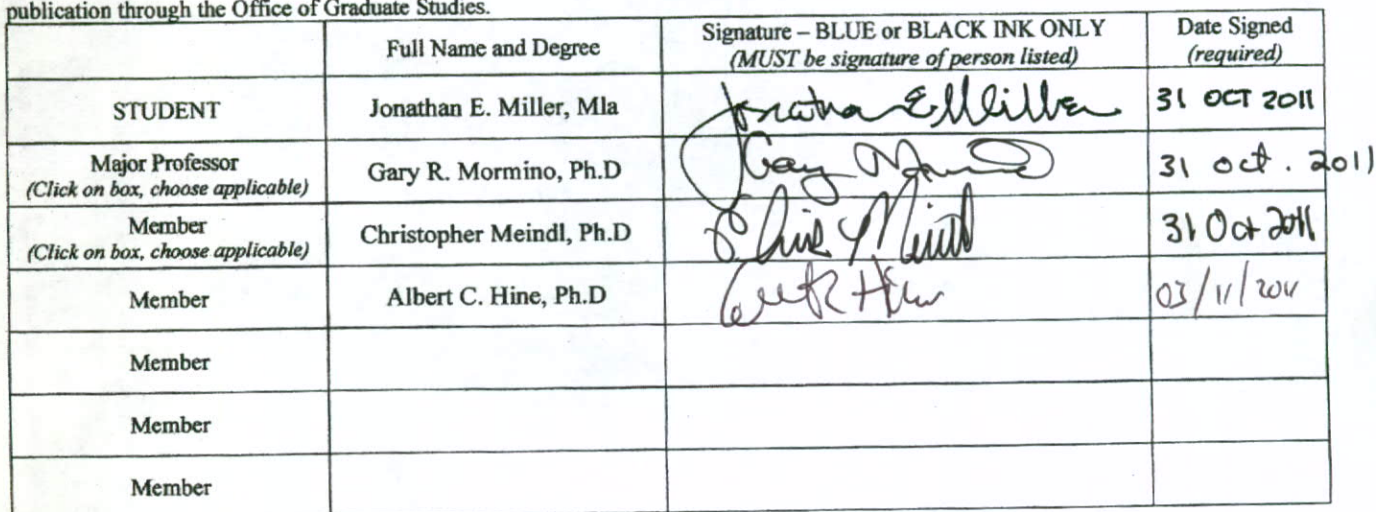 publication through the Office of Graduate Studies.
Full Name and Degree
Signature – BLUE or BLACK INK ONLY
(MUST be signature of person listed)
Date Signed
(required)
STUDENT
Jonathan E. Miller, Mla
Jonathan E Miller
31 OCT 2011
Major Professor
(Click on box, choose applicable)
Gary R. Mormino, Ph.D
Gary Mormino
31 oct. 2011
Member
(Click on box, choose applicable)
Christopher Meindl, Ph.D
Chris Meindl
31 Oct 2011
Member
Albert C. Hine, Ph.D
03/11/2011
Member
Member
Member